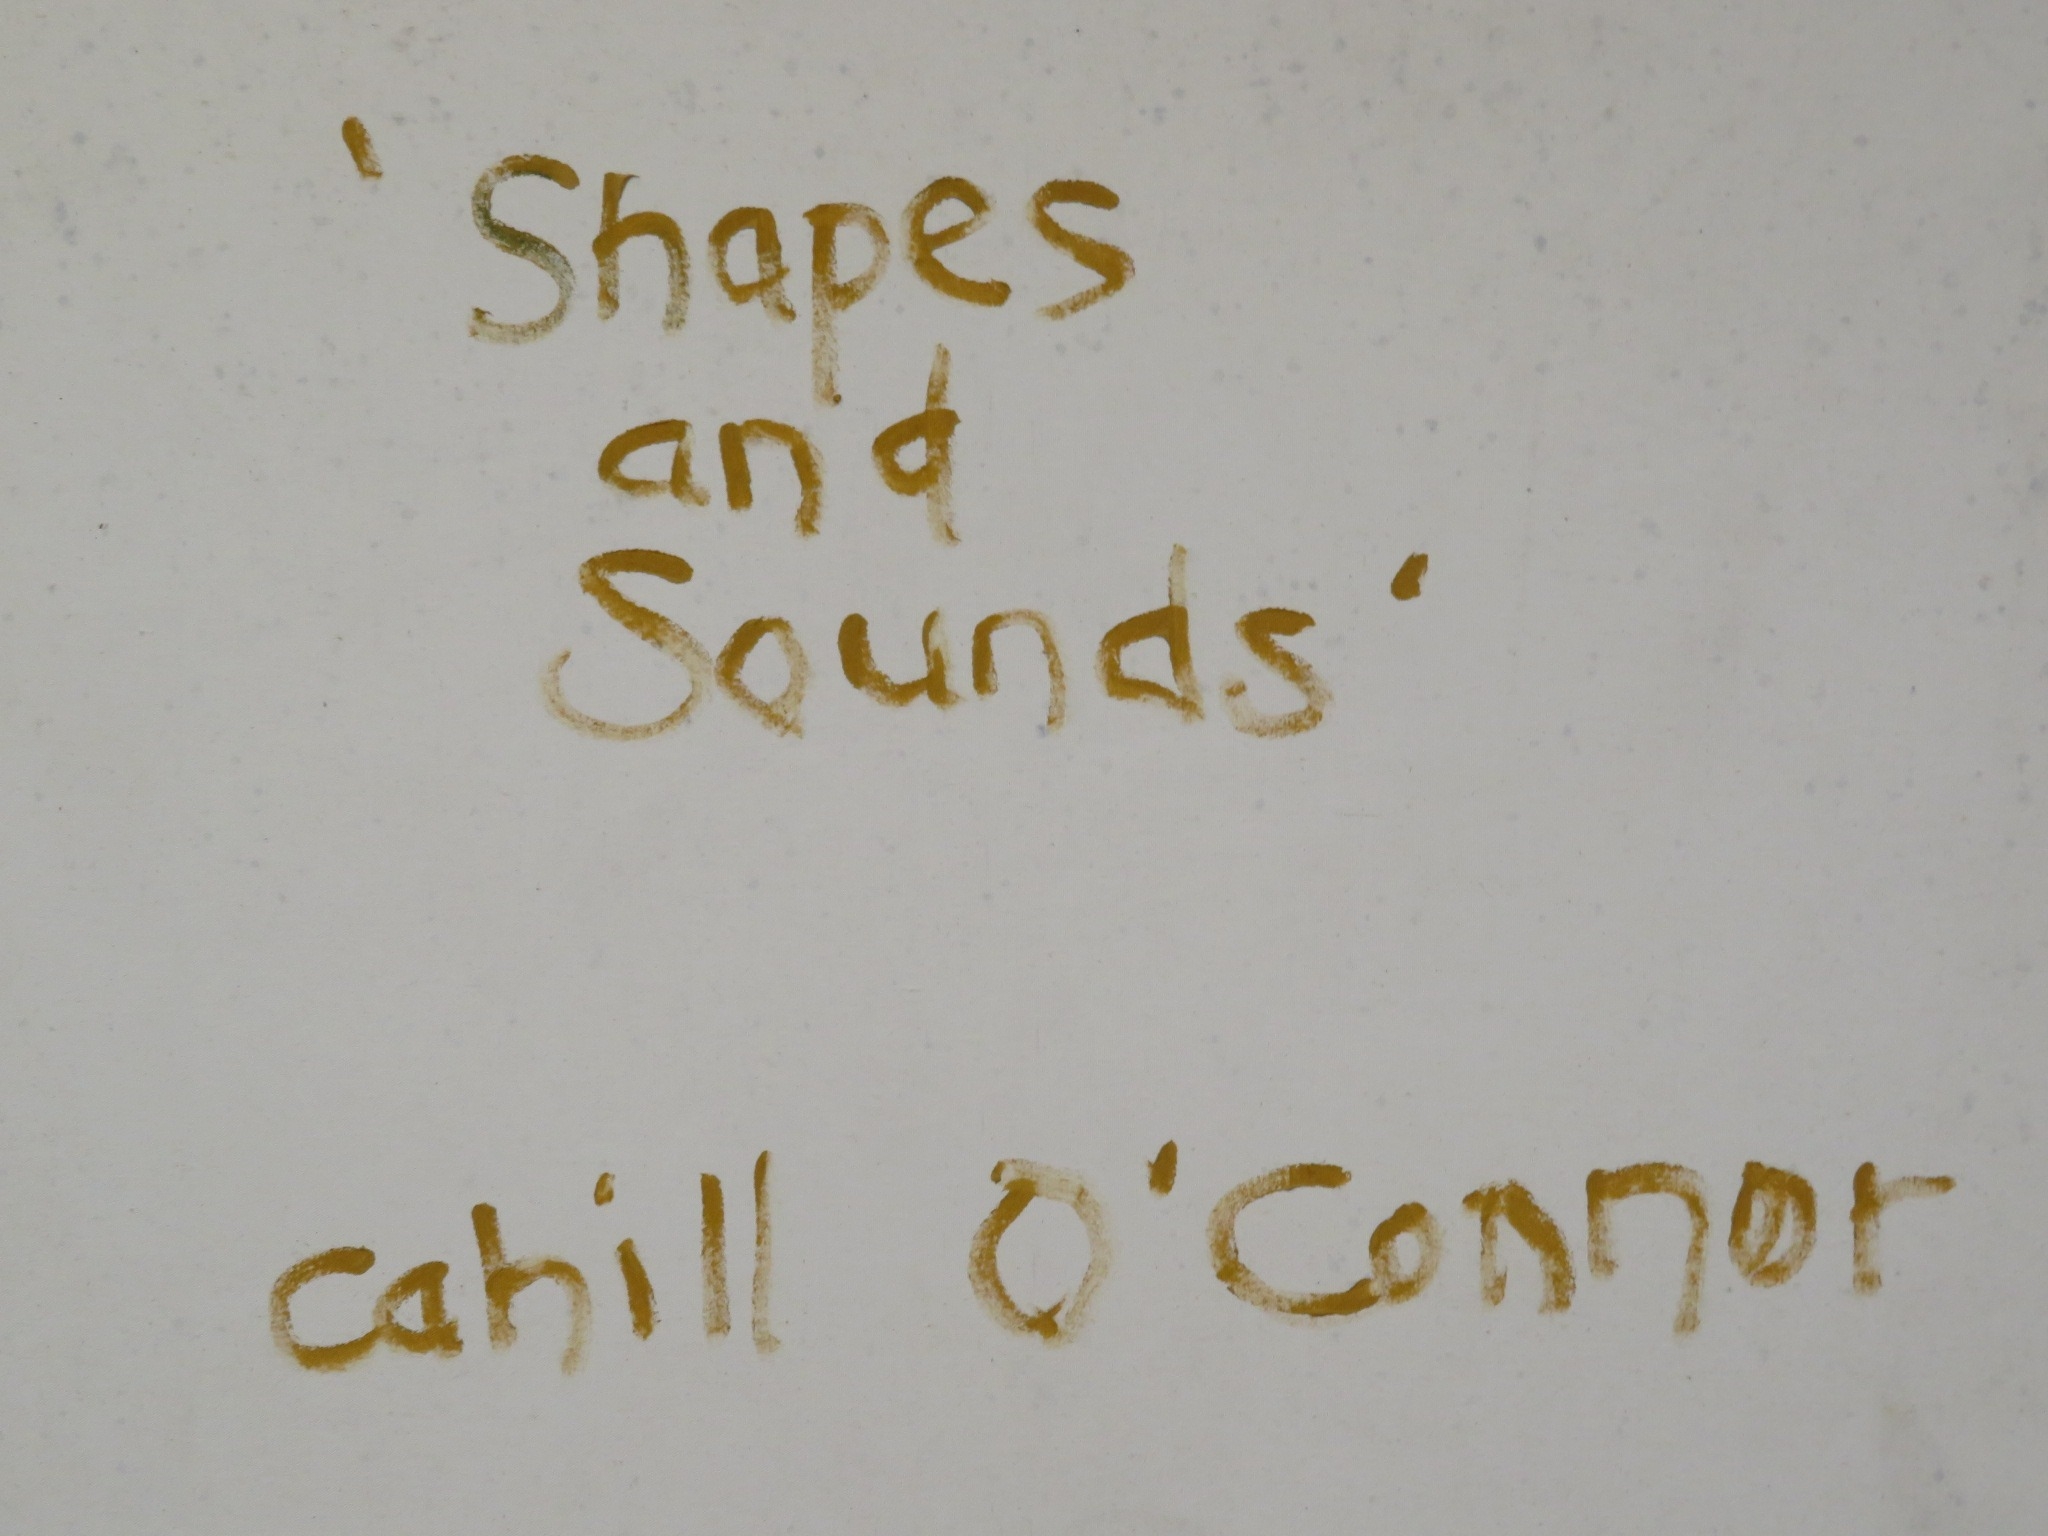 'Shapes
and
Sounds'
Cahill O'Connor